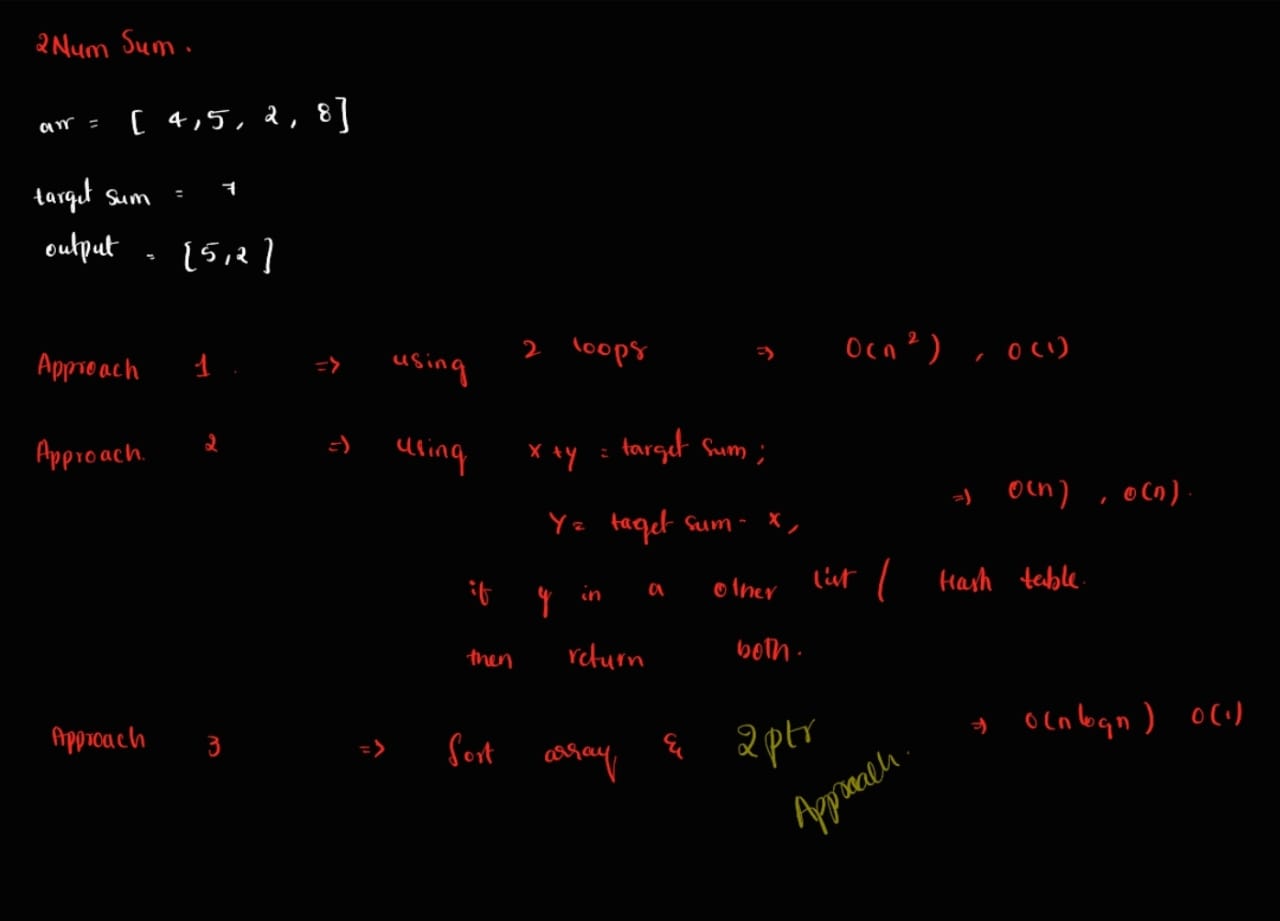 2Num Sum.
arr = [ 4,5, 2, 8]
target sum = 7
output = [5,2]
Approach 1. => using 2 loops => O(n²), O(1)
Approach. 2 => using x+y = target sum;
Y= taget sum - x, => O(n), O(n).
if y in a other list / Hash table.
then return both.
Approach 3 => Sort array & 2ptr Approach. => O(nlogn) O(1)